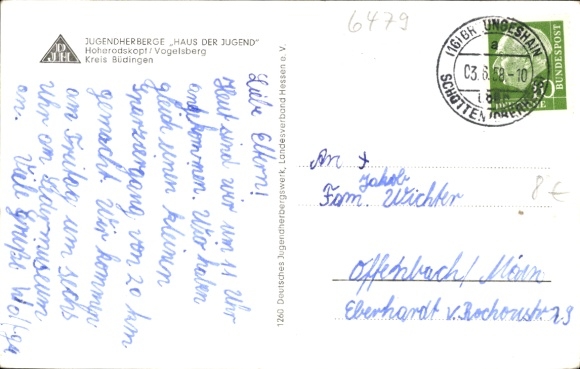 6479
DJH
JUGENDHERBERGE „HAUS DER JUGEND"
Hoherodskopf / Vogelsberg
Kreis Büdingen
Liebe Eltern!
Heut sind wir um 11 Uhr
angekommen. Wir haben
gleich einen kleinen
Spaziergang von 20 km.
gemacht. Wir kommen
am Freitag um sechs
Uhr am Ledermuseum
an. Viele Grüße
1260 Deutsches Jugendherbergswerk, Landesverband Hessen e. V.
(16) BREUNGESHAIN
a
03.6.58.-10
SCHOTTEN
DEUTSCHE BUNDESPOST
An
Jakob
Fam. Wichter
8 €
Offenbach / Main
Eberhardt v. Rochowstr. 29